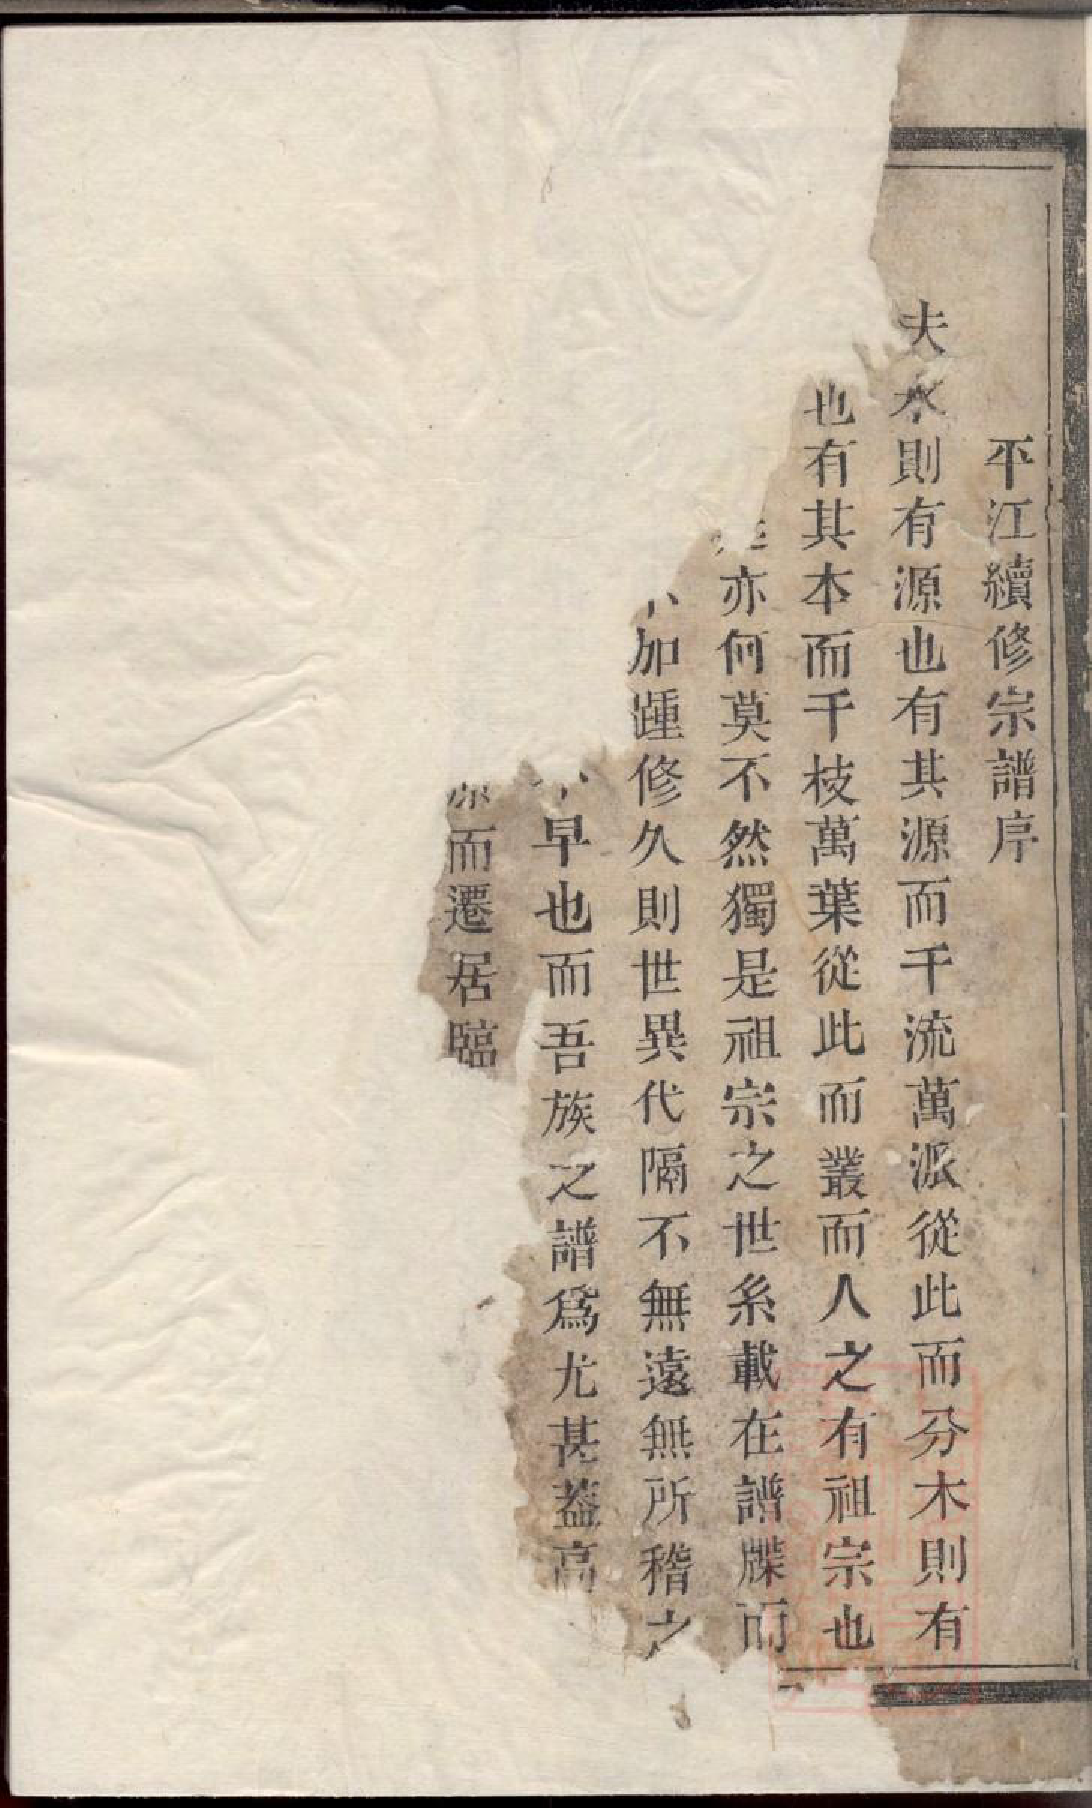 平江續修宗譜序
夫水則有源也有其源而千流萬派從此而分木則有
也有其本而千枝萬葉從此而叢而人之有祖宗也
亦何莫不然獨是祖宗之世系載在譜牒而
加踵修久則世異代隔不無遠無所稽之
早也而吾族之譜爲尤甚蓋高
而遷居臨